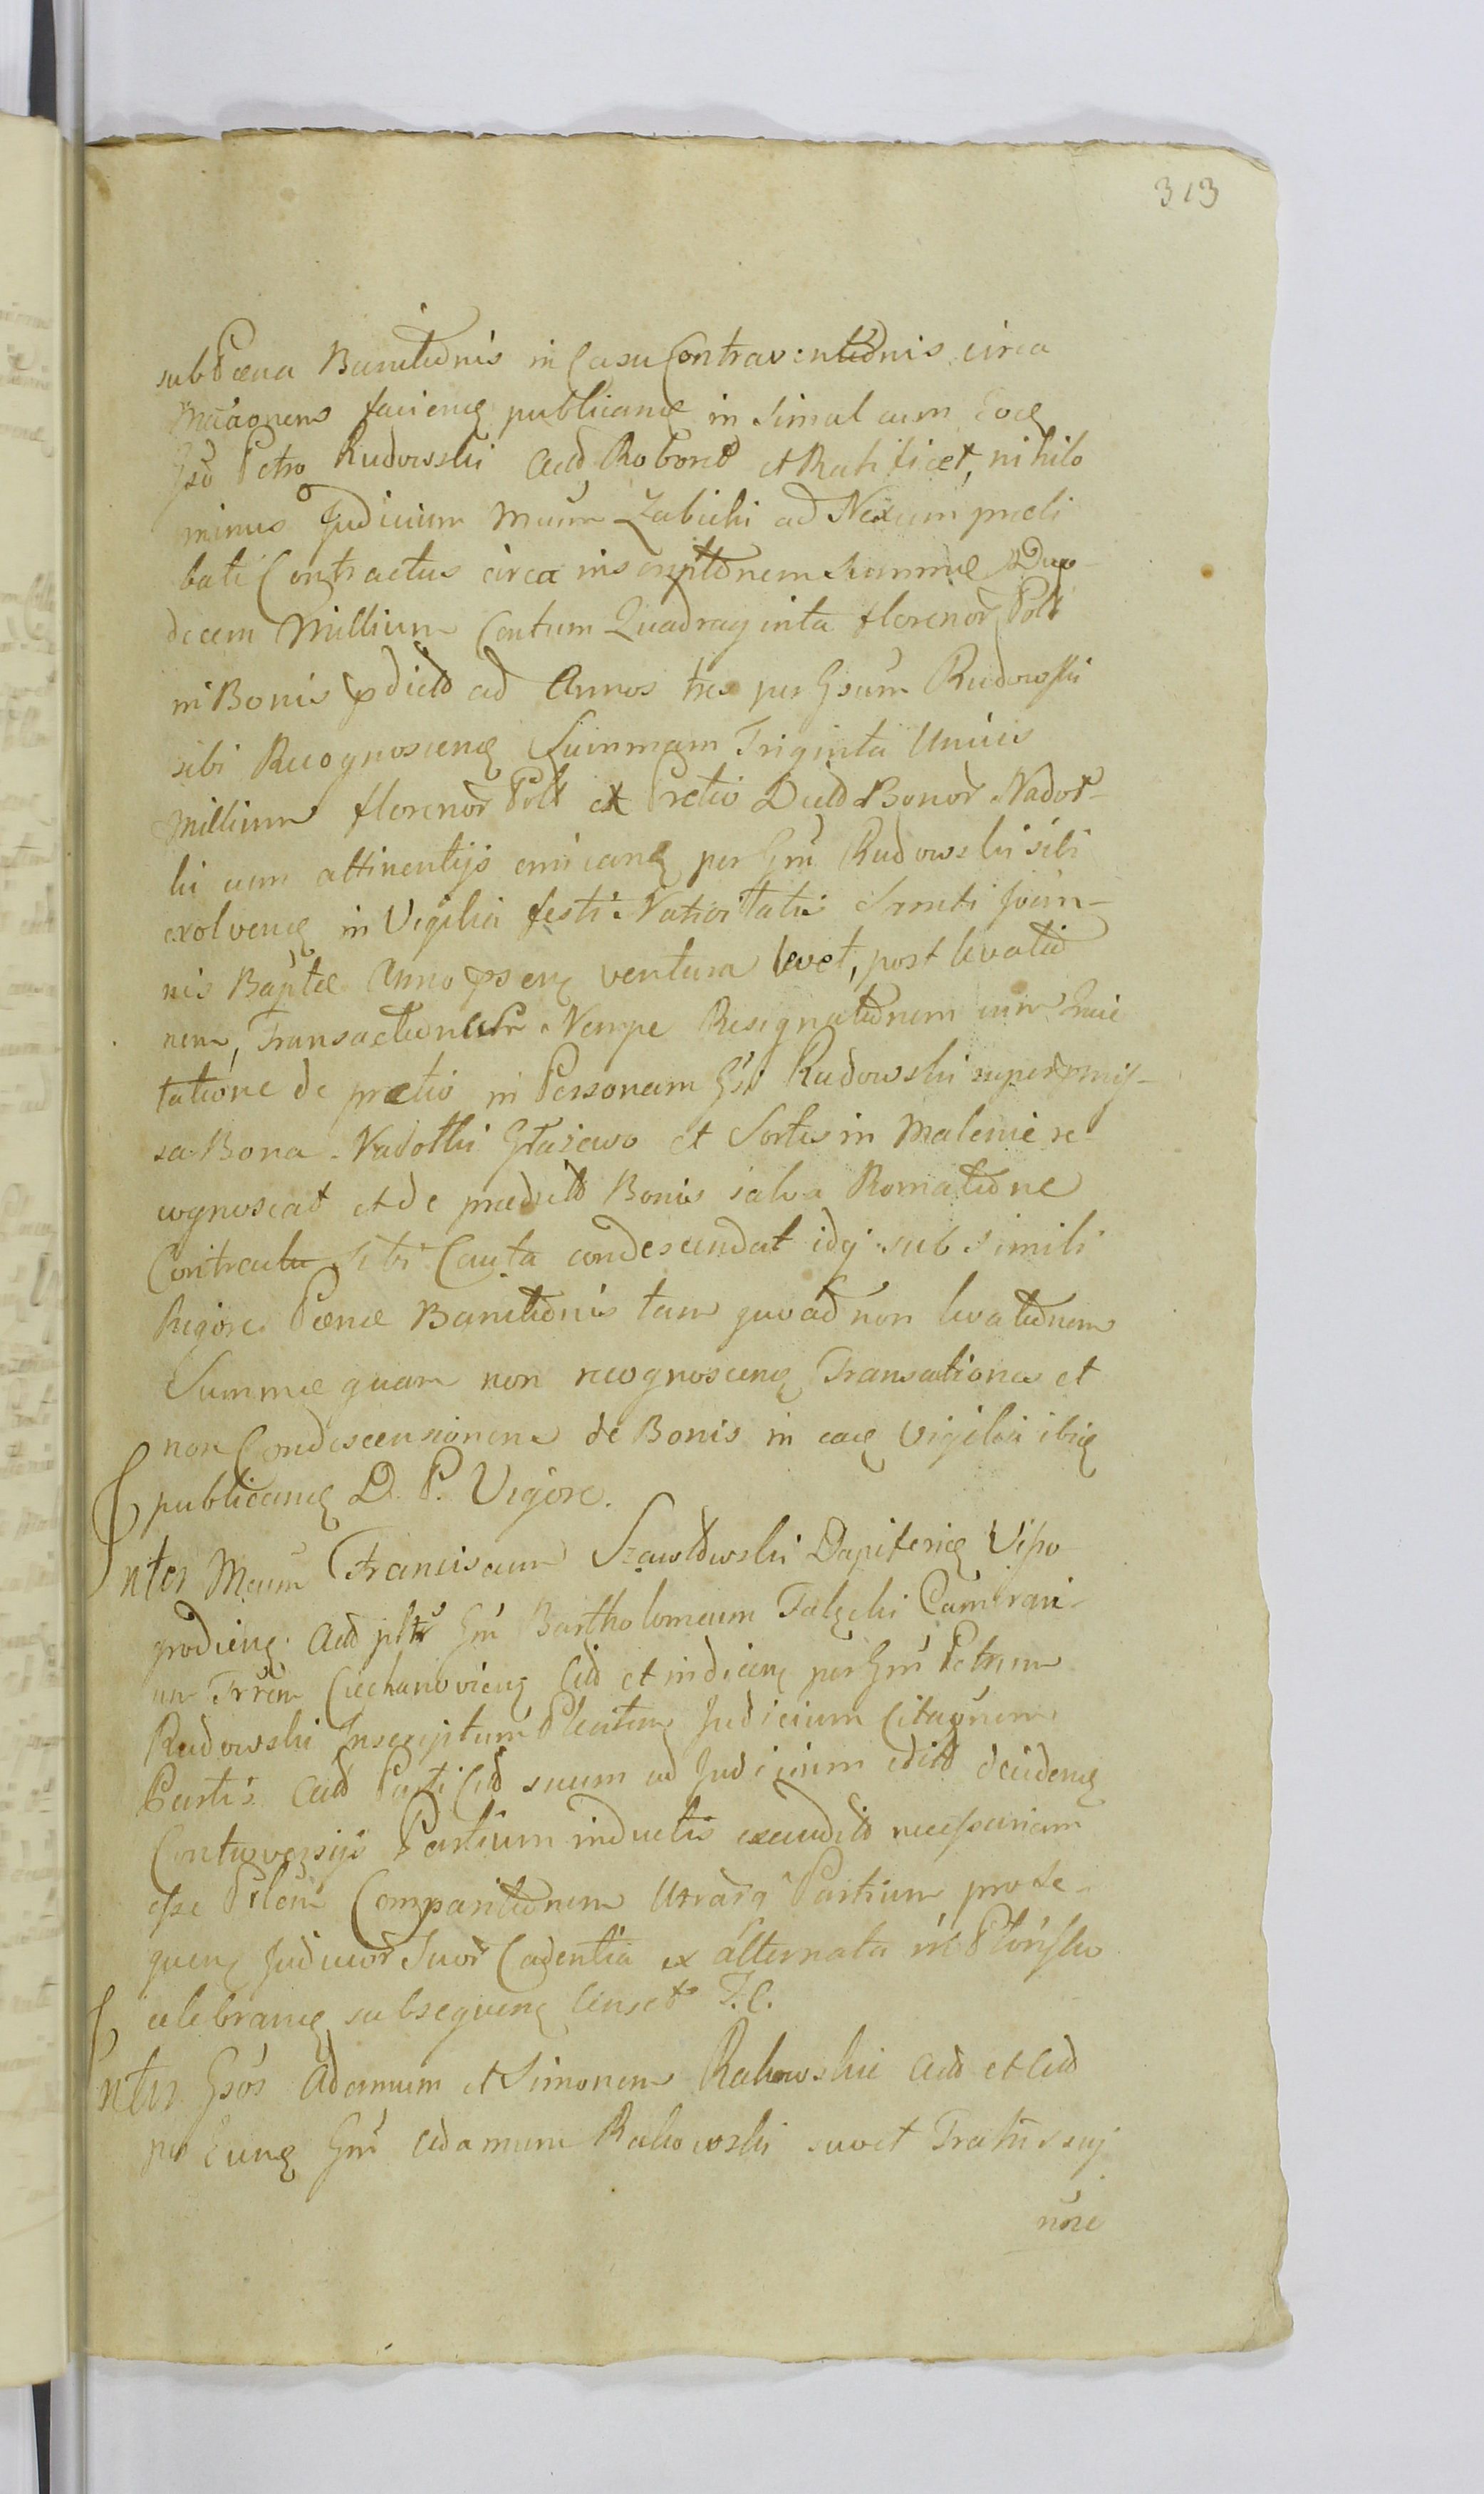 313
sub Paena Banitionis in Casu Contraventionis circa
faciend publicand in simul cum Eod
Gso Petro Rudowski Actd Roboret et Ratificet, nihilo
minus Judicium Mcum Zabicki ad Nexum praeli
bati Contractus circa inscriptionem Summae Duo-
decem Millium Centum Quadraginta florenor Poll
in Bonis pdictd ad Annos tres per Gsum Rudowski
sibi Recognoscend Summam Triginta Unius
Millium florenor Poll ex Pretio Dictd Bonor Nadot-
ki cum attinentijs per Gm Rudowski sibi
exolvend in Vigilia festi Nativitatis Smti Joan-
nis Baptae Anno psend ventura levet, post levatio
nem, Transactionem Nempe Resignationem cum Quie
tatione de praetio in Personam Gsi Rudowski
sa Bona Nadotki Głażewo et Sortis in Malenie re
cognoscat et de praedictd Bonis salva
Contractu sibi Cauta condescendat idq sub simili
Rigore Paenae Banitionis tam quoad non levationem
Summae quam non recognoscend Transactiones et
non Condescensionem de Bonis in ead Vigilia ibid
publicand D. P. Vigore.
Inter Mcum Franciscum Szawłowski Dapiferid Viszo
grodiend Actd Gm Bartholomeum Falęcki Cambrani
um Trrem Ciechanoviend Citd et indicend per Gm Petrum
Rudowski Inscriptum Judicium Citaonem
Partis Citd Parti Citd suum ad Judicium decidend
Controversijs Partium inductis exauditd necessariam
esse Plem Comparitionem Utrarq Partium prose-
quend Judicior Suor Cadentia ex alternata in Płońsko
celebrand subsequend Censet T. C.
Inter Gsos Adamum et Simonem Rakowskie Actd et Citd
per Eund Gm Adamum Rakowski suo et Fratris sui
nore